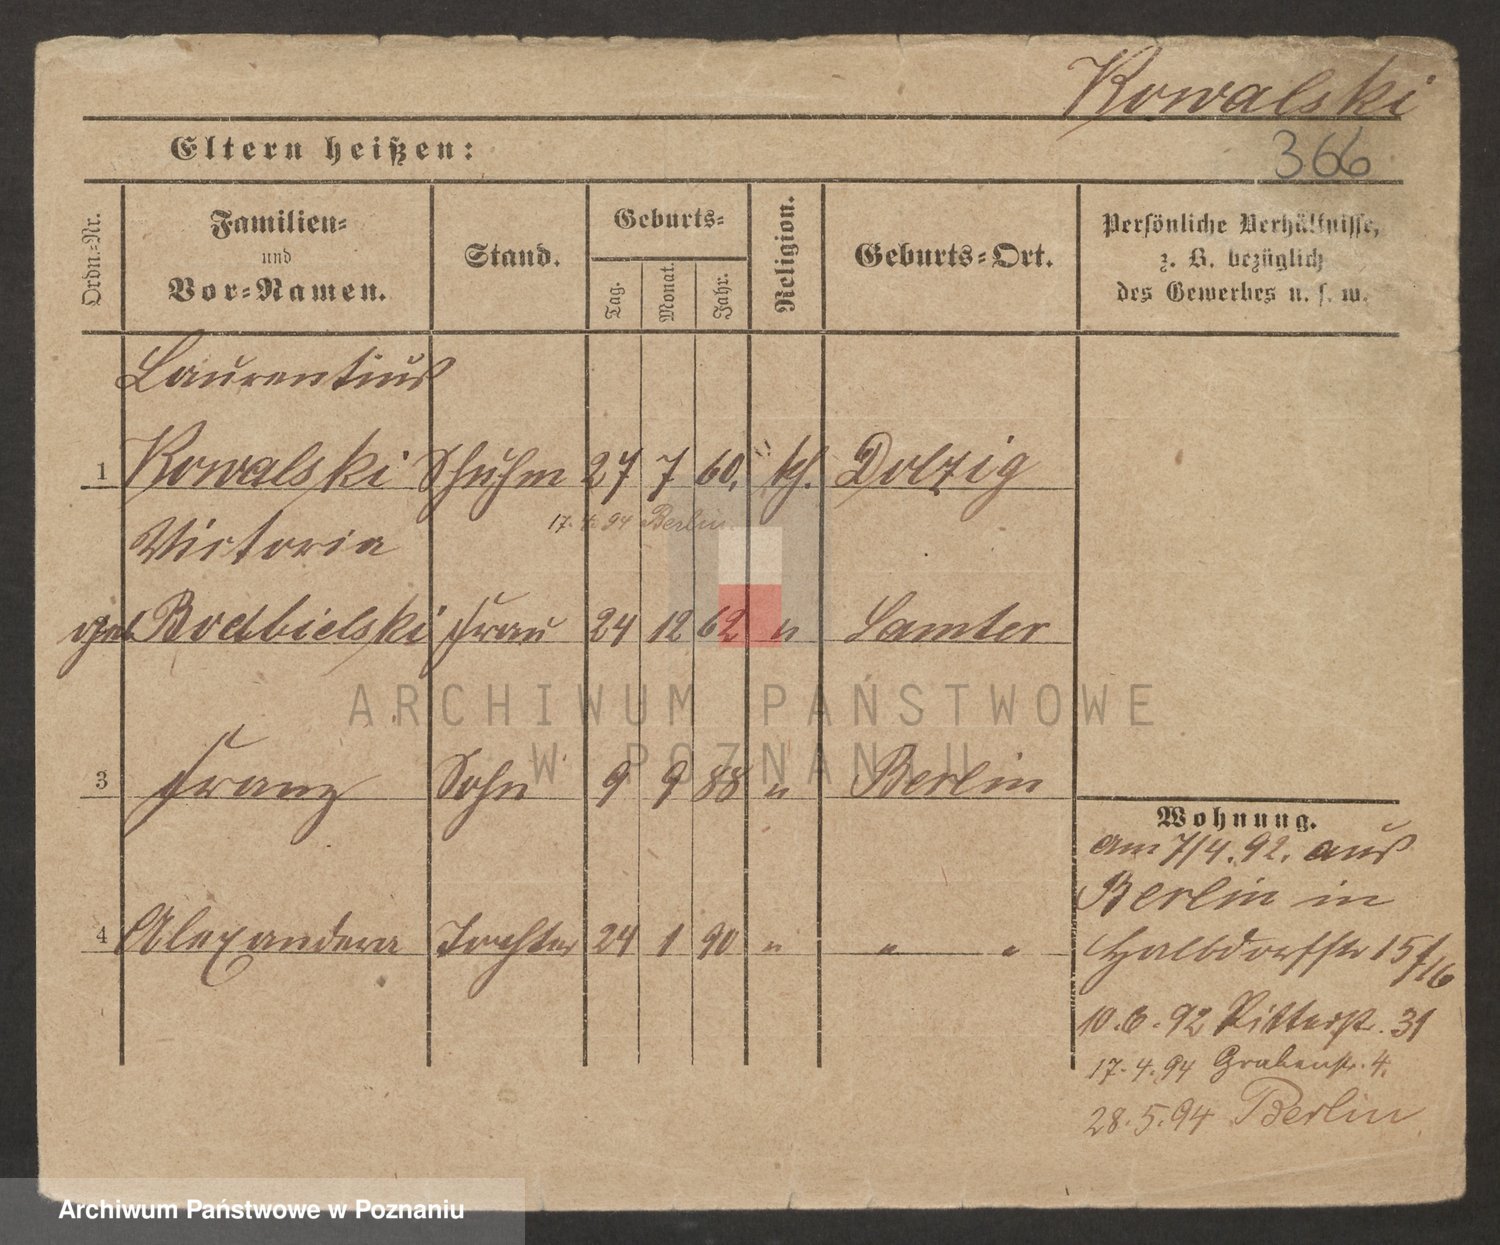 Kowalski
366
Eltern heißen:
Ordn.-Nr.
Familien-
und
Vor-Namen.
Stand.
Geburts-
Tag.
Monat.
Jahr.
Religion.
Geburts-Ort.
Persönliche Verhältnisse,
z. B. bezüglich
des Gewerbes u. s. w.
Laurentius
1 Kowalski Schuhm 27 7 60. kth. Dolzig
17. 4. 94 Berlin
Victoria
geb Bodbielski Frau 24 12 62 " Samter
3 Franz Sohn 9 9 88 " Berlin
4 Alexandera Tochter 24 1 90 " " "
Wohnung.
am 7/4. 92. aus
Berlin in
Halbdorfstr 15/16
10. 6. 92 Ritterstr. 31
17. 4. 94 Grabenstr. 4.
28. 5. 94 Berlin
ARCHIWUM PAŃSTWOWE
W POZNANIU
Archiwum Państwowe w Poznaniu